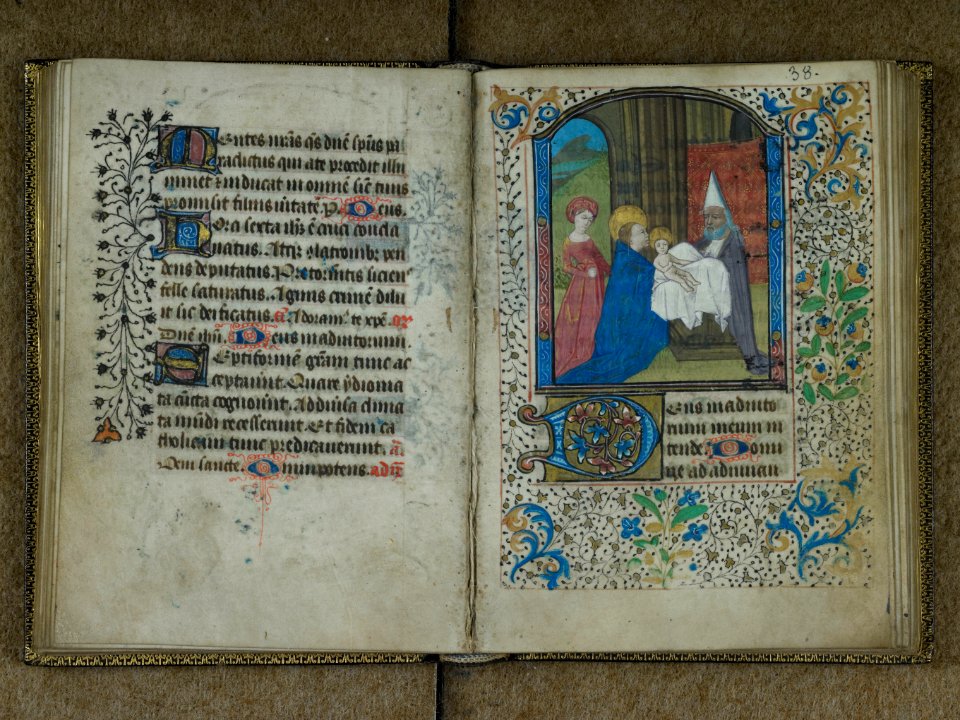 38.
Mentes nr̄as q̄s dn̄e sp̄us pa
raclitus qui a te procedit illu
minet & inducat in omnē sic̄ tuus
promisit filius ūitatē. P̄. Deus.
Hora sexta ihs̄ ē cruci concla
uatus. Atqꝫ ē latronibꝫ pen
dens deputatus. Pre tormētis sicien
felle saturatus. Agnus crimē dilu
it sic deificatus. a. Adoram9 te xp̄e.
Dn̄e ihū. Deus in adiutorium
Septiformē gr̄am tunc ac
ceptauit. Quare ydioma
ta cūcta cognouerūt. Ad diūsa clima
ta mūdi recesserunt. Et fidem ca
tholicam tunc predicauerunt. a.
Veni sancte. Omnipotens.
Deus in adiuto
rium meum in
tende. Domi
ne ad adiuuan